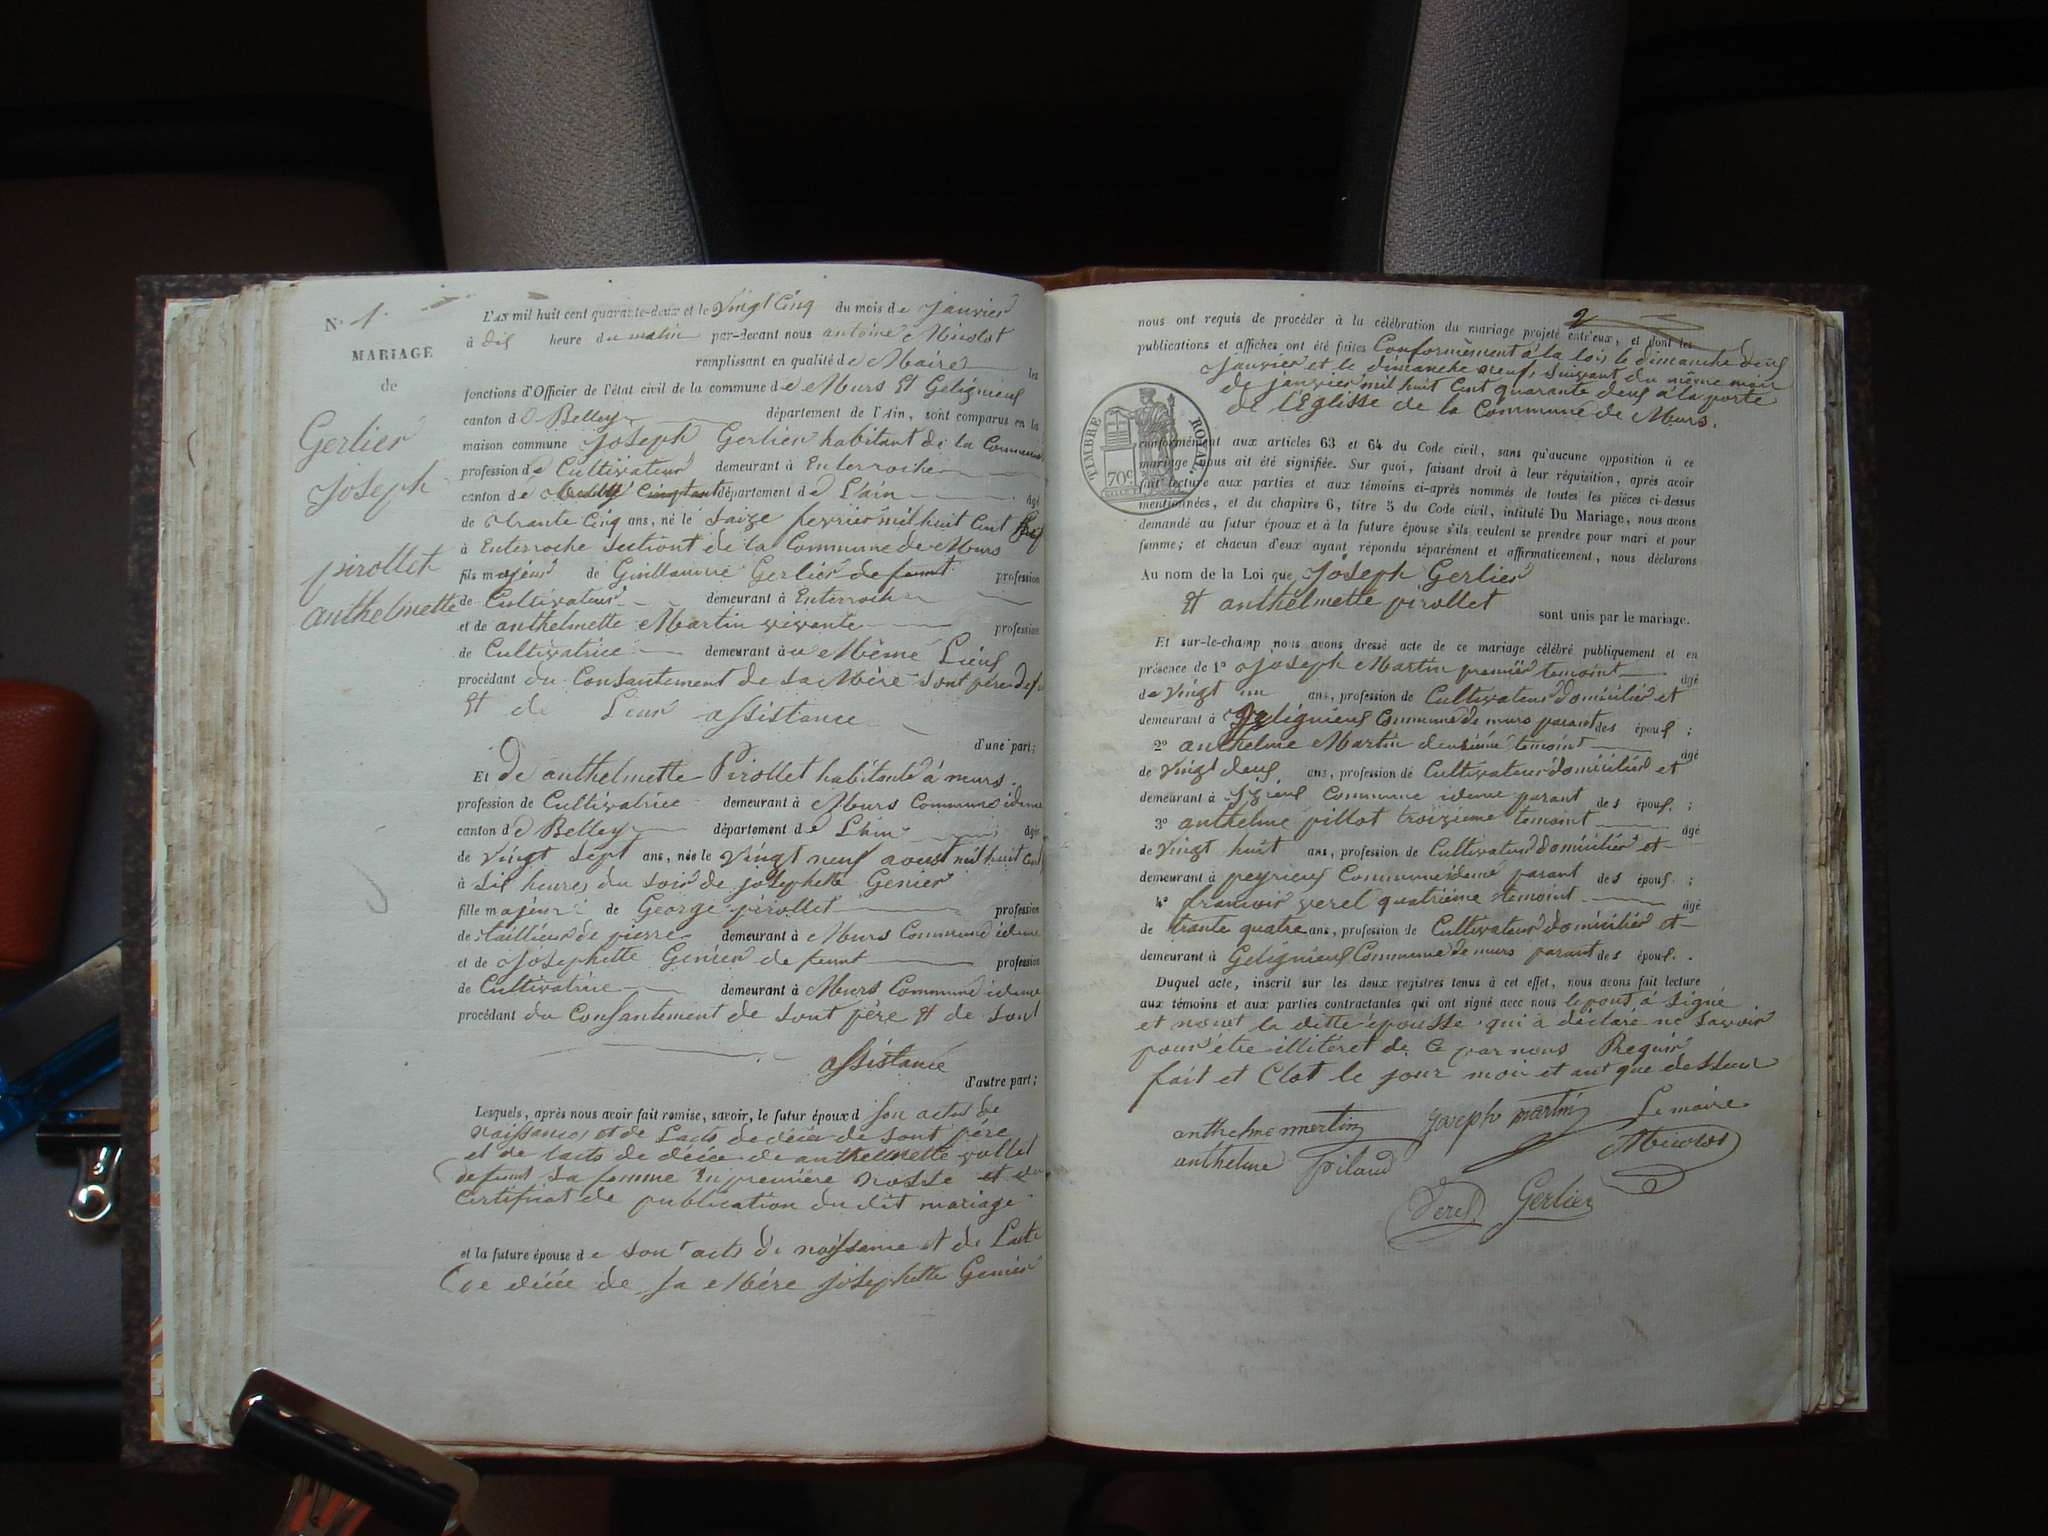 N.º 1.
MARIAGE
de
Gerlier
Joseph
pirollet
anthelmette
L'AN mil huit cent quarante-deux et le Vingt Cinq du mois de Janvier
à dis heure du matin par-devant nous antoine Micolot
remplissant en qualité de Maire les
fonctions d'Officier de l'état civil de la commune de Murs Et Gelignieus
canton de Belley département de l'Ain, sont comparus en la
maison commune Joseph Gerlier habitant de la Commune
profession de Cultivateur demeurant à Enterroche
canton de département de L'ain âgé
de trante Cinq ans, né le Saize fevrier mil huit Cent
à Enterroche Sectiont de la Commune de Murs
fils majeur de Guillaume Gerlier defunt profession
de Cultivateur demeurant à Enterroche
et de anthelmette Martin vivante profession
de Cultivatrice demeurant à u Même Lieus
procédant du Consantement de Sa Mère Sont père
Et de Leur assistance
d'une part;
Et De anthelmette Pirollet habitante à murs
profession de Cultivatrice demeurant à Murs Commune ideme
canton de Belley département de L'hin âgée
de vingt Sept ans, née le Vingt neuf aoust mil huit Cent
à Sis heures du Soir de josephette Genier
fille majeur de George pirollet profession
de taillieur de pierre demeurant à Murs Commune ideme
et de Josephette Genier defunt profession
de Cultivatrice demeurant à Murs Commune ideme
procédant du Consantement de Sont père Et de Sont
assistance
d'autre part;
Lesquels, après nous avoir fait remise, savoir, le futur époux d Son actes de
naissances et de Lacts de décès de Sont père
et de lacts de décée de anthelmette vollet
defunt Sa femme En première nosse et
Certificat de publication du dit mariage
et la future épouse de Sont acts de naissance et de Lacte
de décée de Sa Mère Josephette Genier
2
nous ont requis de procéder à la célébration du mariage projeté entr'eux, et dont les
publications et affiches ont été faites Conformément à la lois le dimanche deus
Janvier et le dimanche neuf, Suivant du même mois
de janvier mil huit Cent quarante deus à la porte
de l'Eglisse de la Commune de Murs.
TIMBRE ROYAL.
70c
conformément aux articles 63 et 64 du Code civil, sans qu'aucune opposition à ce
mariage nous ait été signifiée. Sur quoi, faisant droit à leur réquisition, après avoir
fait lecture aux parties et aux témoins ci-après nommés de toutes les pièces ci-dessus
mentionnées, et du chapitre 6, titre 5 du Code civil, intitulé Du Mariage, nous avons
demandé au futur époux et à la future épouse s'ils veulent se prendre pour mari et pour
femme; et chacun d'eux ayant répondu séparément et affirmativement, nous déclarons
Au nom de la Loi que Joseph Gerlier
Et anthelmette pirollet
sont unis par le mariage.
Et sur-le-champ nous avons dressé acte de ce mariage célébré publiquement et en
présence de 1º Joseph Martin premier temoint âgé
de vingt un ans, profession de Cultivateur domicilier et
demeurant à Gelignieus Commune de murs parant des épous ;
2º anthelme Martin deusième temoint âgé
de vingt deus ans, profession de Cultivateur domicilier et
demeurant à Izieus Commune ideme parant des épous. ;
3º anthelme pillot troizieme temoint âgé
de vingt huit ans, profession de Cultivateur domicilier et
demeurant à peyrieus Commune ideme parant des épous. ;
4º francoir veret quatrième temoint âgé
de trante quatre ans, profession de Cultivateur domicilier et
demeurant à Gelignieus Commune de murs parant des épous. .
Duquel acte, inscrit sur les deux registres tenus à cet effet, nous avons fait lecture
aux témoins et aux parties contractantes qui ont signé avec nous lepous à Signé
et nont la ditte épousse qui à déclaré ne Savoir
pour être illitéret de Ce par nous Requir
fait et Clot le jour mois et ant que dessur
anthelme martin Joseph martin Le maire
anthelme pilaud Micolot
Veret Gerlier